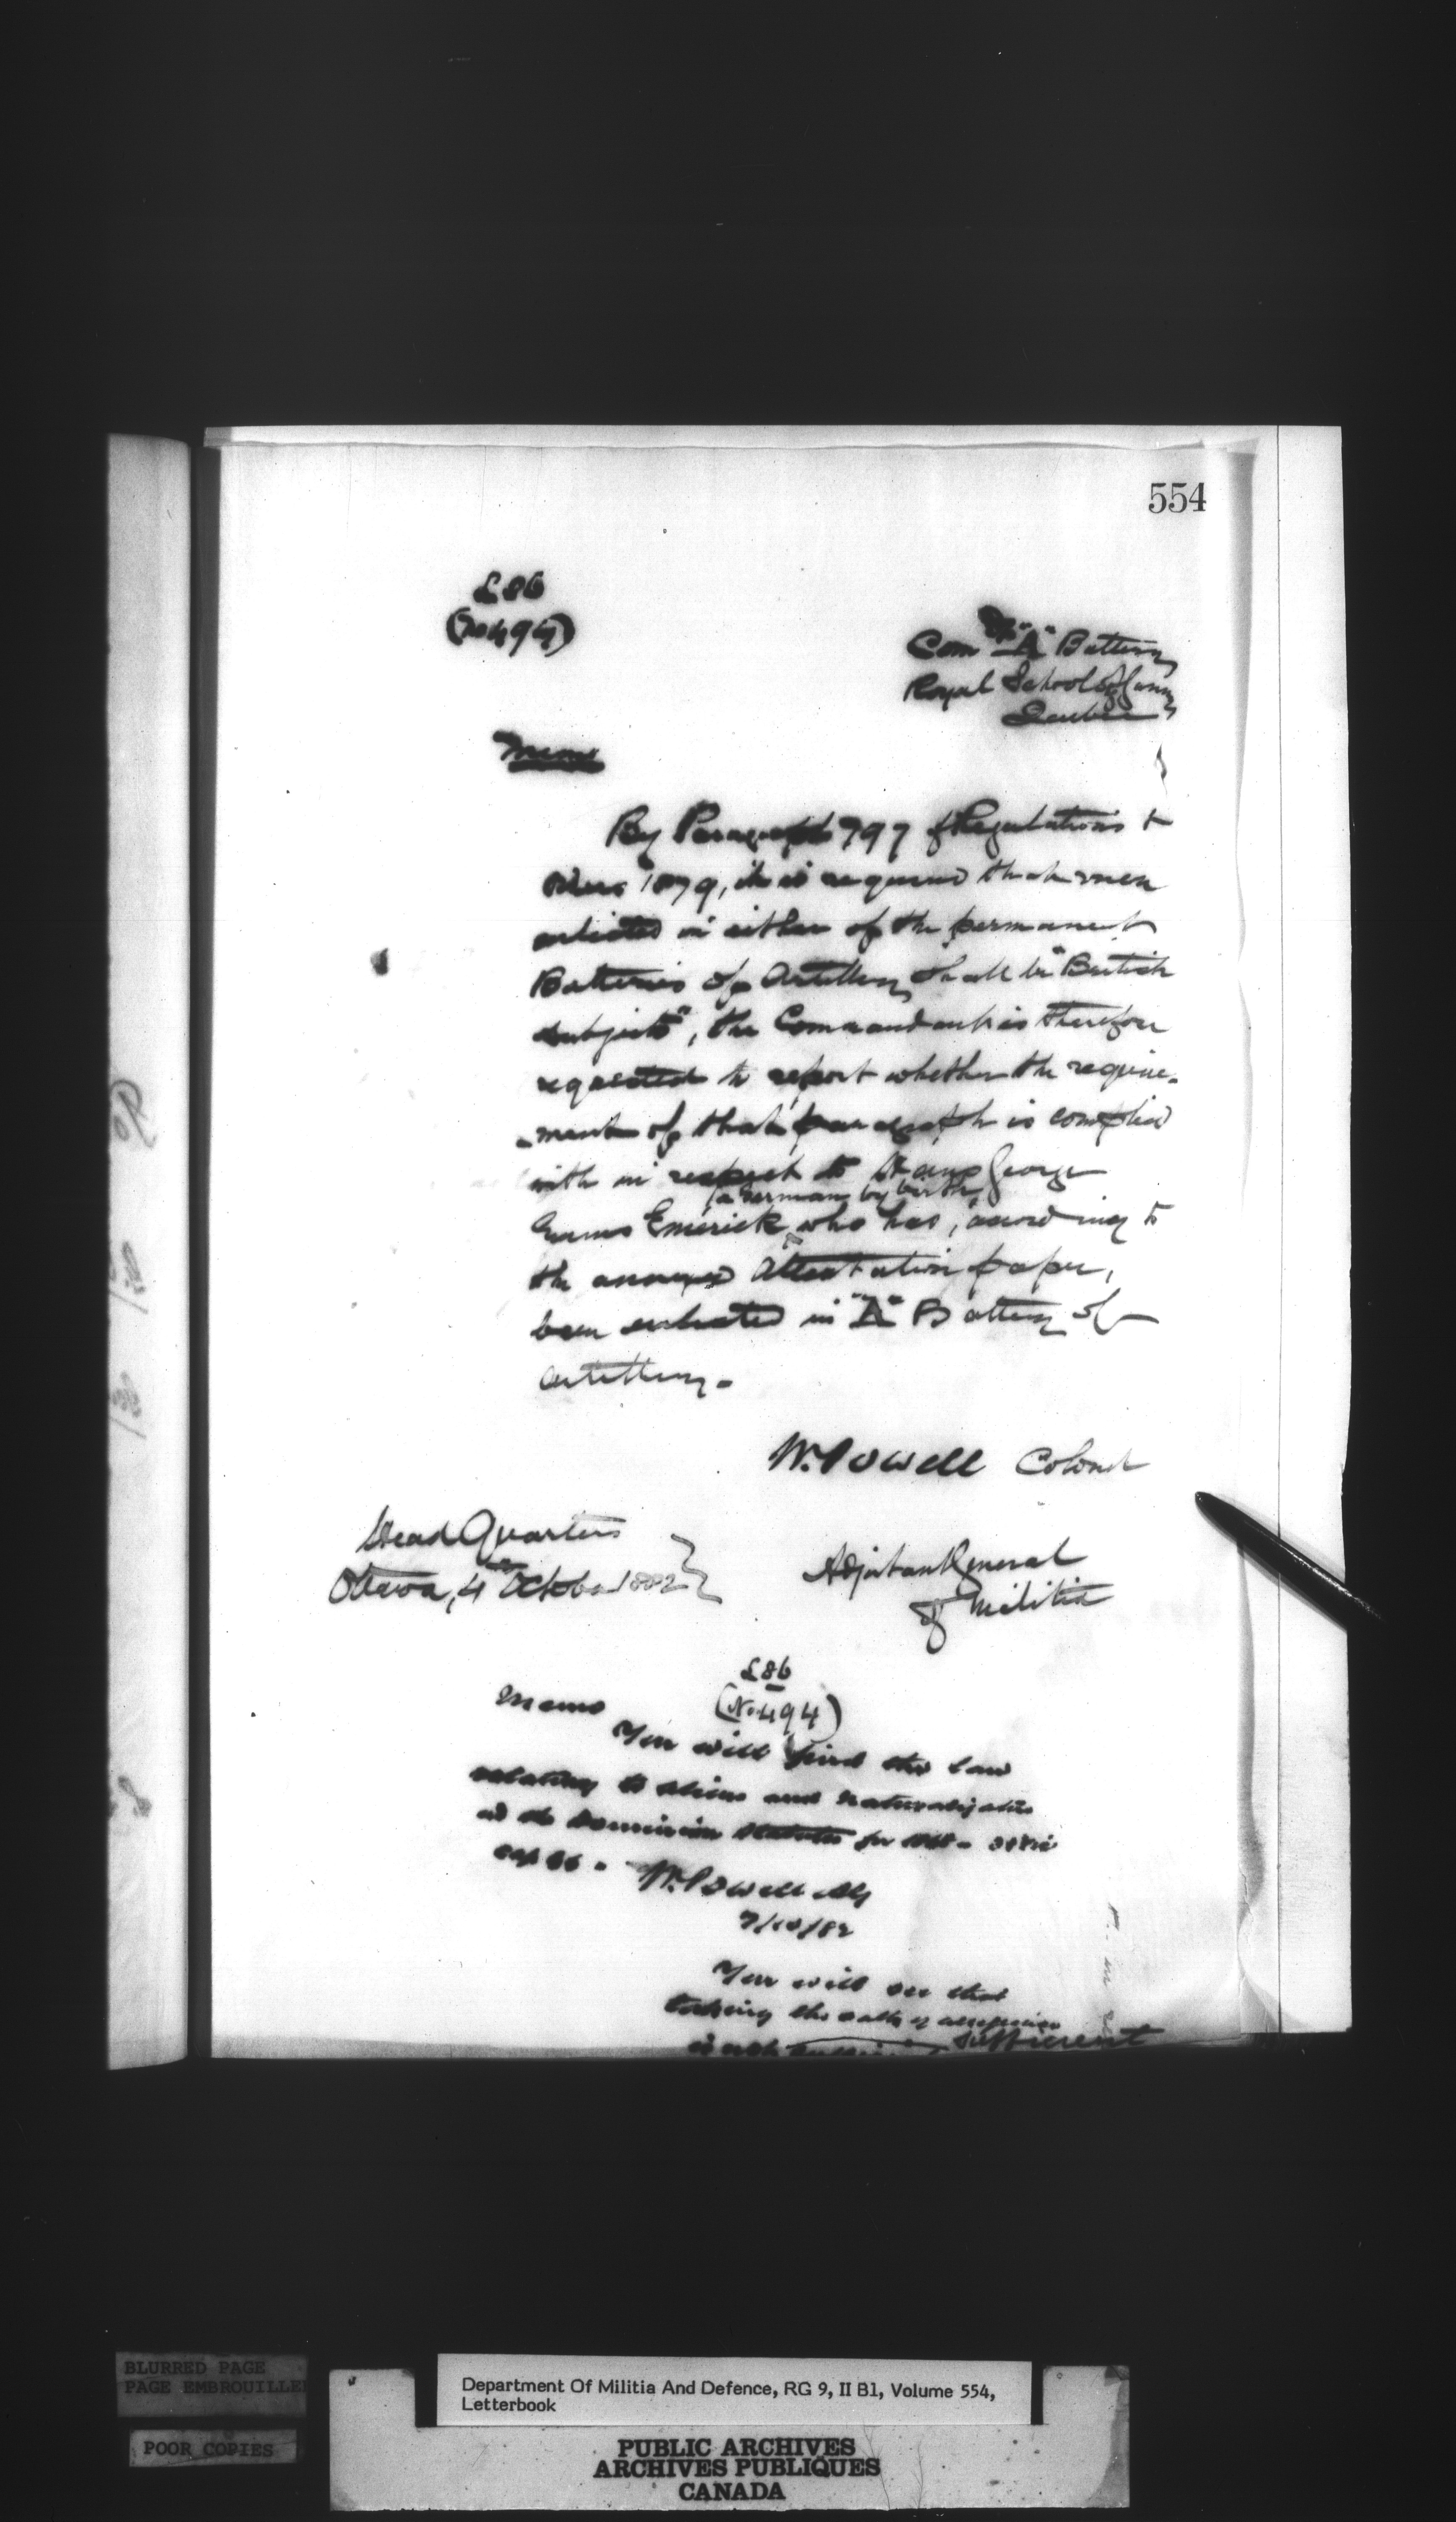 554
£86
(No 494)
Comdt "A" Battery
Royal School of Gunnery
Quebec
Memo
By Paragraph 797 of Regulations &
Orders 1879, it is required that men
enlisted in either of the permanent
Batteries of Artillery shall be "British
subjects", the Commandant is therefore
requested to report whether the require-
-ment of that paragraph is complied
with in respect to Hans George
(a German by birth)
Emerick who has, according to
the annexed Attestation paper,
been enlisted in "A" Battery of
Artillery.
W. Powell Colonel
Head Quarters
Ottawa, 4th October 1882
Adjutant General
of Militia
£86
(No 494)
Memo
You will find the law
relating to aliens and naturalization
in the Dominion Statutes for 1868 -
cap 66.
W. Powell AG
7/10/82
You will see that
taking the oath of allegiance
is not sufficient
BLURRED PAGE
PAGE EMBROUILLE
POOR COPIES
Department Of Militia And Defence, RG 9, II B1, Volume 554,
Letterbook
PUBLIC ARCHIVES
ARCHIVES PUBLIQUES
CANADA